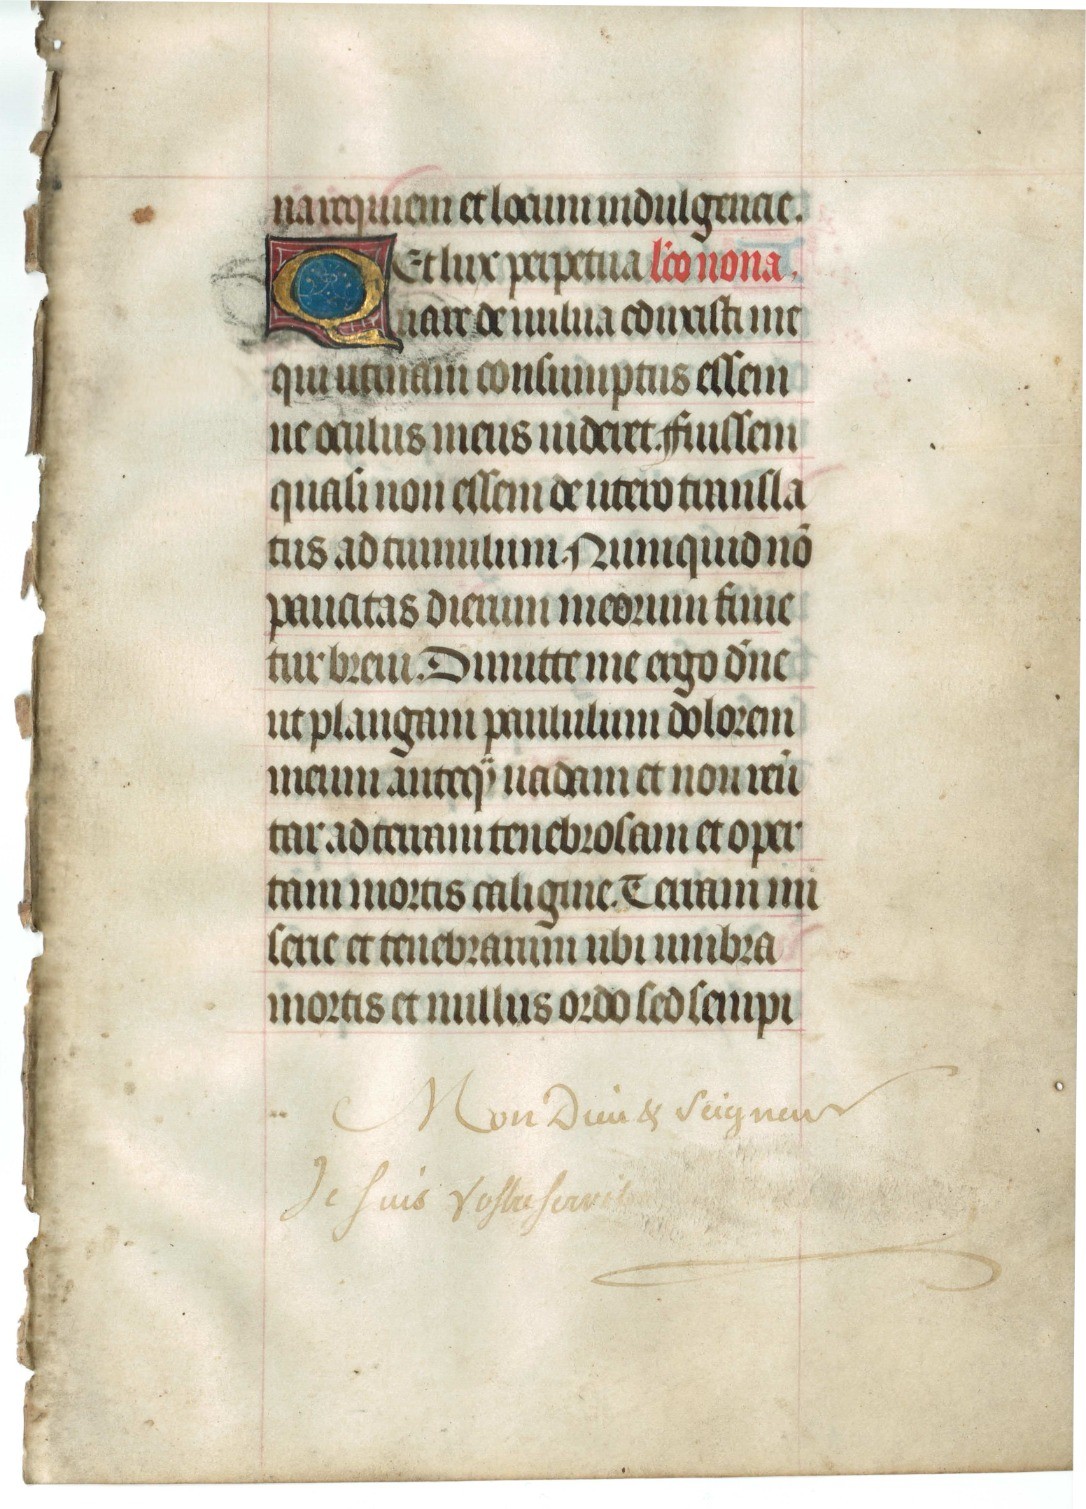 na requiem et locum indulgencie.
Et lux perpetua l'co nona.
Quare de uulua eduxisti me
qui utinam consumptus essem
ne oculus meus uideret. Fuissem
quasi non essem de utero transla
tus ad tumulum. Numquid nō
paucitas dierum meorum finie
tur breui. Dimitte me ergo dn̄e
ut plangam paululum dolorem
meum anteq̄ uadam et non reū
tar ad terram tenebrosam et oper
tam mortis caligine. Terram mi
serie et tenebrarum ubi umbra
mortis et nullus ordo sed sempi
Mon Dieu & Seigneur
Je suis vostre